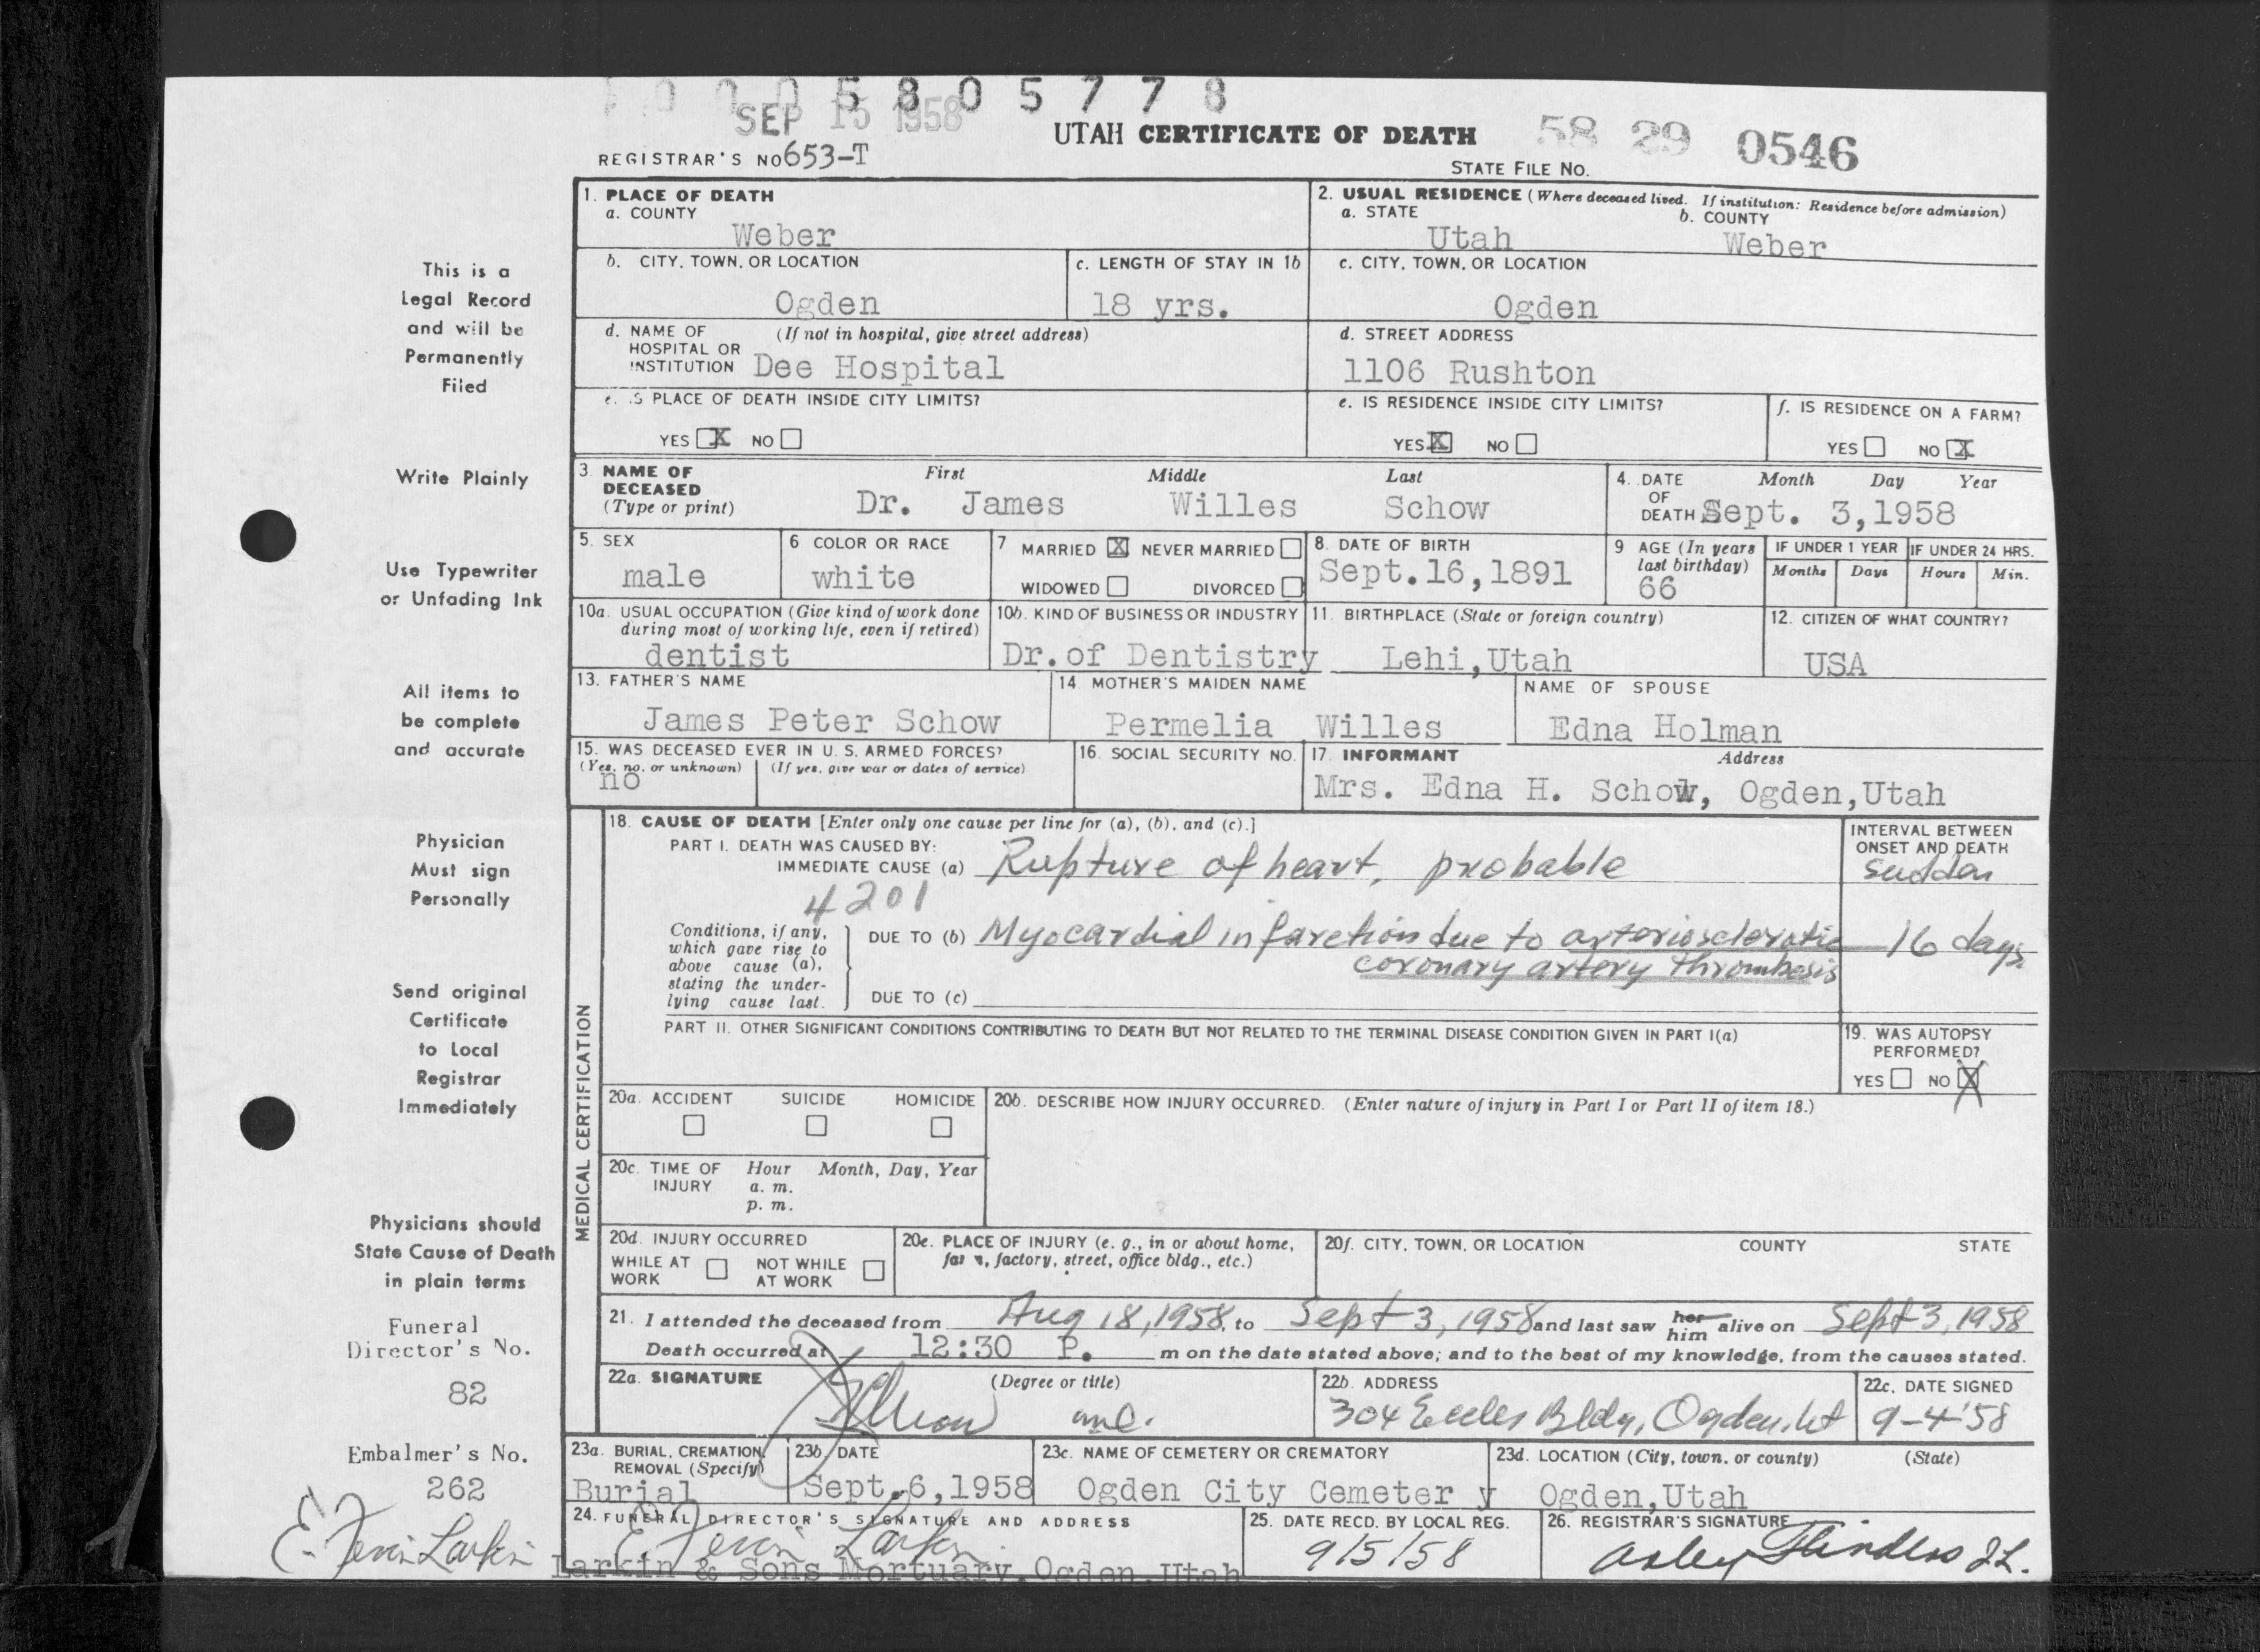 0 0 0 5 8 0 5 7 7 8
SEP 15 1958
UTAH CERTIFICATE OF DEATH
58 29 0546
REGISTRAR'S NO 653-T
STATE FILE NO.
This is a
Legal Record
and will be
Permanently
Filed
Write Plainly
Use Typewriter
or Unfading Ink
All items to
be complete
and accurate
Physician
Must sign
Personally
Send original
Certificate
to Local
Registrar
Immediately
Physicians should
State Cause of Death
in plain terms
Funeral
Director's No.
82
Embalmer's No.
262
E. Larkin
1. PLACE OF DEATH
a. COUNTY
Weber
2. USUAL RESIDENCE (Where deceased lived. If institution: Residence before admission)
a. STATE b. COUNTY
Utah Weber
b. CITY, TOWN, OR LOCATION
Ogden
c. LENGTH OF STAY IN 1b
18 yrs.
c. CITY, TOWN, OR LOCATION
Ogden
d. NAME OF (If not in hospital, give street address)
HOSPITAL OR
INSTITUTION Dee Hospital
d. STREET ADDRESS
1106 Rushton
e. IS PLACE OF DEATH INSIDE CITY LIMITS?
YES X NO
e. IS RESIDENCE INSIDE CITY LIMITS?
YES X NO
f. IS RESIDENCE ON A FARM?
YES NO X
3. NAME OF First Middle Last
DECEASED
(Type or print) Dr. James Willes Schow
4. DATE Month Day Year
OF
DEATH Sept. 3,1958
5. SEX
male
6 COLOR OR RACE
white
7 MARRIED X NEVER MARRIED
WIDOWED DIVORCED
8. DATE OF BIRTH
Sept.16,1891
9 AGE (In years
last birthday)
66
IF UNDER 1 YEAR IF UNDER 24 HRS.
Months Days Hours Min.
10a. USUAL OCCUPATION (Give kind of work done
during most of working life, even if retired)
dentist
10b. KIND OF BUSINESS OR INDUSTRY
Dr.of Dentistry
11. BIRTHPLACE (State or foreign country)
Lehi,Utah
12. CITIZEN OF WHAT COUNTRY?
USA
13. FATHER'S NAME
James Peter Schow
14. MOTHER'S MAIDEN NAME
Permelia Willes
NAME OF SPOUSE
Edna Holman
15. WAS DECEASED EVER IN U. S. ARMED FORCES?
(Yes, no, or unknown) (If yes, give war or dates of service)
no
16. SOCIAL SECURITY NO.
17. INFORMANT Address
Mrs. Edna H. Schow, Ogden,Utah
MEDICAL CERTIFICATION
18. CAUSE OF DEATH [Enter only one cause per line for (a), (b), and (c).]
PART I. DEATH WAS CAUSED BY:
IMMEDIATE CAUSE (a) Rupture of heart, probable
INTERVAL BETWEEN
ONSET AND DEATH
sudden
4201
Conditions, if any,
which gave rise to
above cause (a),
stating the under-
lying cause last.
DUE TO (b) Myocardial infarction due to arteriosclerotic 16 days
coronary artery thrombosis
DUE TO (c)
PART II. OTHER SIGNIFICANT CONDITIONS CONTRIBUTING TO DEATH BUT NOT RELATED TO THE TERMINAL DISEASE CONDITION GIVEN IN PART I(a)
19. WAS AUTOPSY
PERFORMED?
YES NO X
20a. ACCIDENT SUICIDE HOMICIDE
20b. DESCRIBE HOW INJURY OCCURRED. (Enter nature of injury in Part I or Part II of item 18.)
20c. TIME OF Hour Month, Day, Year
INJURY a. m.
p. m.
20d. INJURY OCCURRED
WHILE AT NOT WHILE
WORK AT WORK
20e. PLACE OF INJURY (e. g., in or about home,
farm, factory, street, office bldg., etc.)
20f. CITY, TOWN, OR LOCATION COUNTY STATE
21. I attended the deceased from Aug 18, 1958, to Sept 3, 1958 and last saw her him alive on Sept 3, 1958
Death occurred at 12:30 P. m on the date stated above; and to the best of my knowledge, from the causes stated.
22a. SIGNATURE (Degree or title)
22b. ADDRESS
304 Eccles Bldg, Ogden, Ut
22c. DATE SIGNED
9-4-'58
23a. BURIAL, CREMATION,
REMOVAL (Specify)
Burial
23b. DATE
Sept.6,1958
23c. NAME OF CEMETERY OR CREMATORY
Ogden City Cemeter y
23d. LOCATION (City, town, or county) (State)
Ogden,Utah
24. FUNERAL DIRECTOR'S SIGNATURE AND ADDRESS
E. Larkin
Larkin & Sons Mortuary, Ogden Utah
25. DATE RECD. BY LOCAL REG.
9/5/58
26. REGISTRAR'S SIGNATURE
Flinders